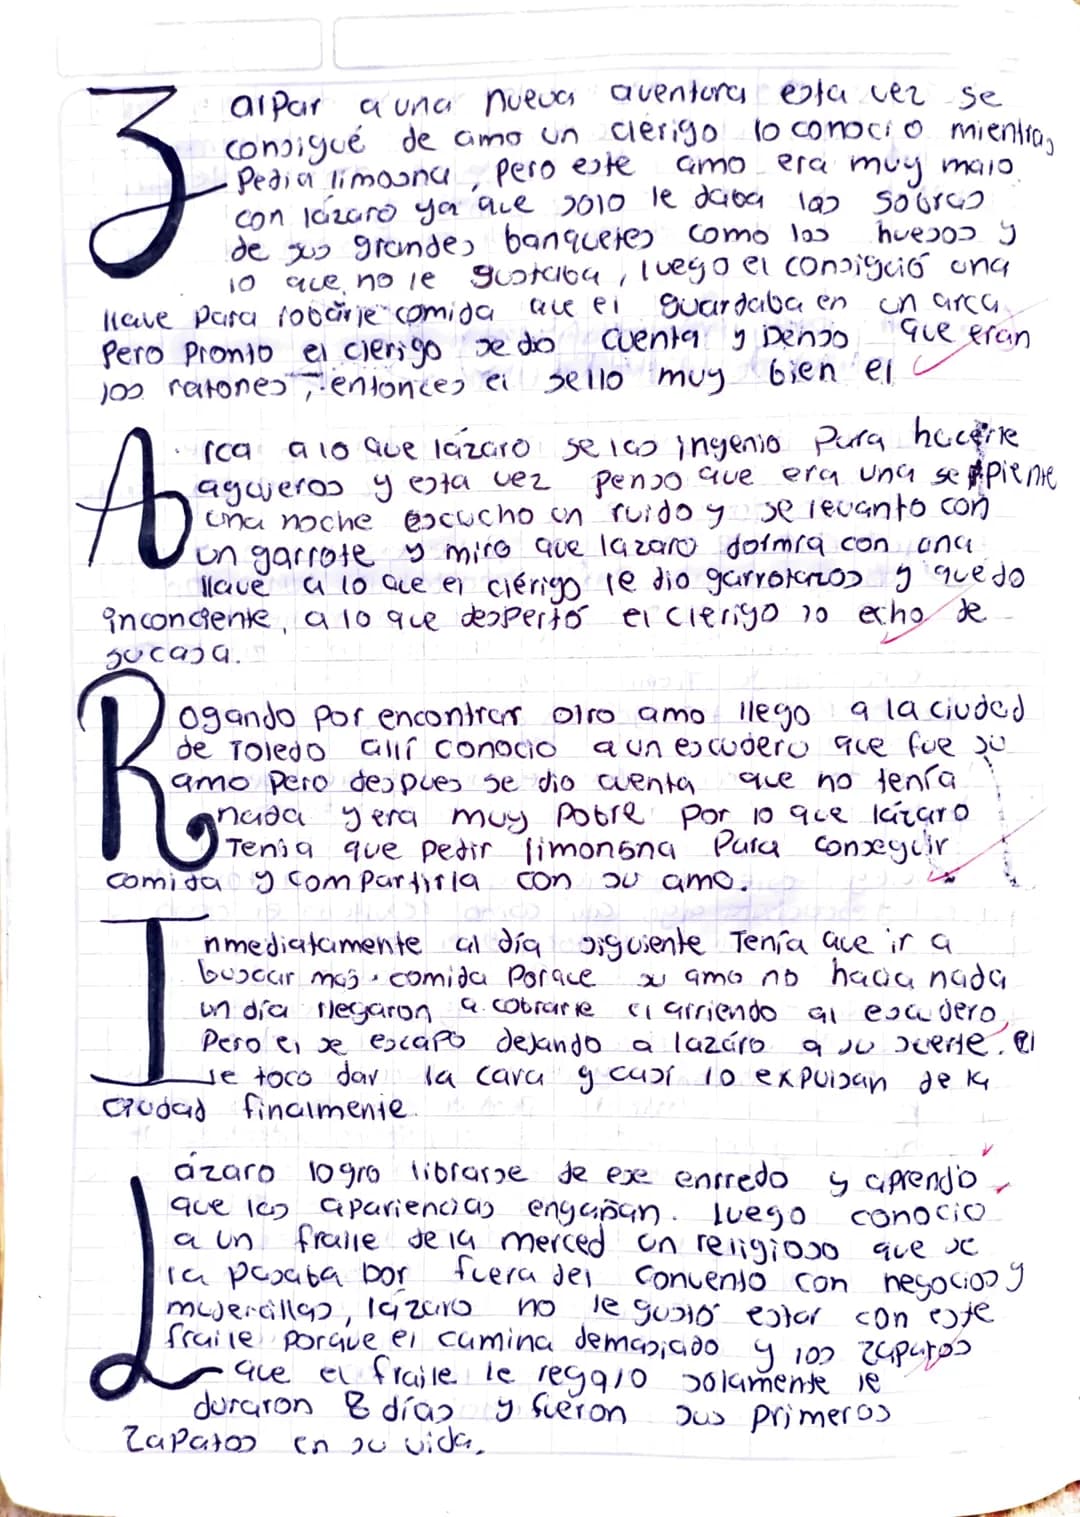 Zalpar a una nueva aventura esta vez se
consigué de amo un clérigo lo conocio mientras
Pedia limosna, pero este amo era muy malo
con lázaro ya que solo le daba las sobras
de sus grandes banquetes como los huesos y
lo que no le gustaba, luego el consiguió una
llave para robarle comida que el guardaba en un arca
Pero Pronto el clerigo se dio cuenta y penso que eran
los ratones, entonces el sello muy bien el
Arca a lo que lázaro se las ingenio para hacerle
agujeros y esta vez penso que era una serpiente
una noche escucho un ruido y se levanto con
un garrote y miro que lazaro dormia con una
llave a lo que el clérigo le dio garrotazos y quedo
inconciente, a lo que despertó el clerigo lo echo de
su casa.
Rogando por encontrar otro amo llego a la ciudad
de Toledo allí conocio a un escudero que fue su
amo pero despues se dio cuenta que no tenía
nada y era muy pobre por lo que lázaro
Tenia que pedir limonsna para conseguir
comida y compartirla con su amo.
Inmediatamente al día siguiente Tenía que ir a
buscar mas comida porque su amo no hacia nada
un día llegaron a cobrarle el arriendo al escudero,
Pero el se escapo dejando a lazáro a su suerte. El
le toco dar la cara y casi lo expulsan de la
ciudad finalmente.
Lázaro logro librarse de ese enrredo y aprendio
que las apariencias engañan. luego conocio
a un fraile de la merced un religioso que se
la pasaba por fuera del convento con negocios y
mujercillas, lázaro no le gustó estar con este
fraile porque el camina demasiado y los zapatos
que el fraile le regalo solamente le
duraron 8 días y fueron sus primeros
Zapatos en su vida.